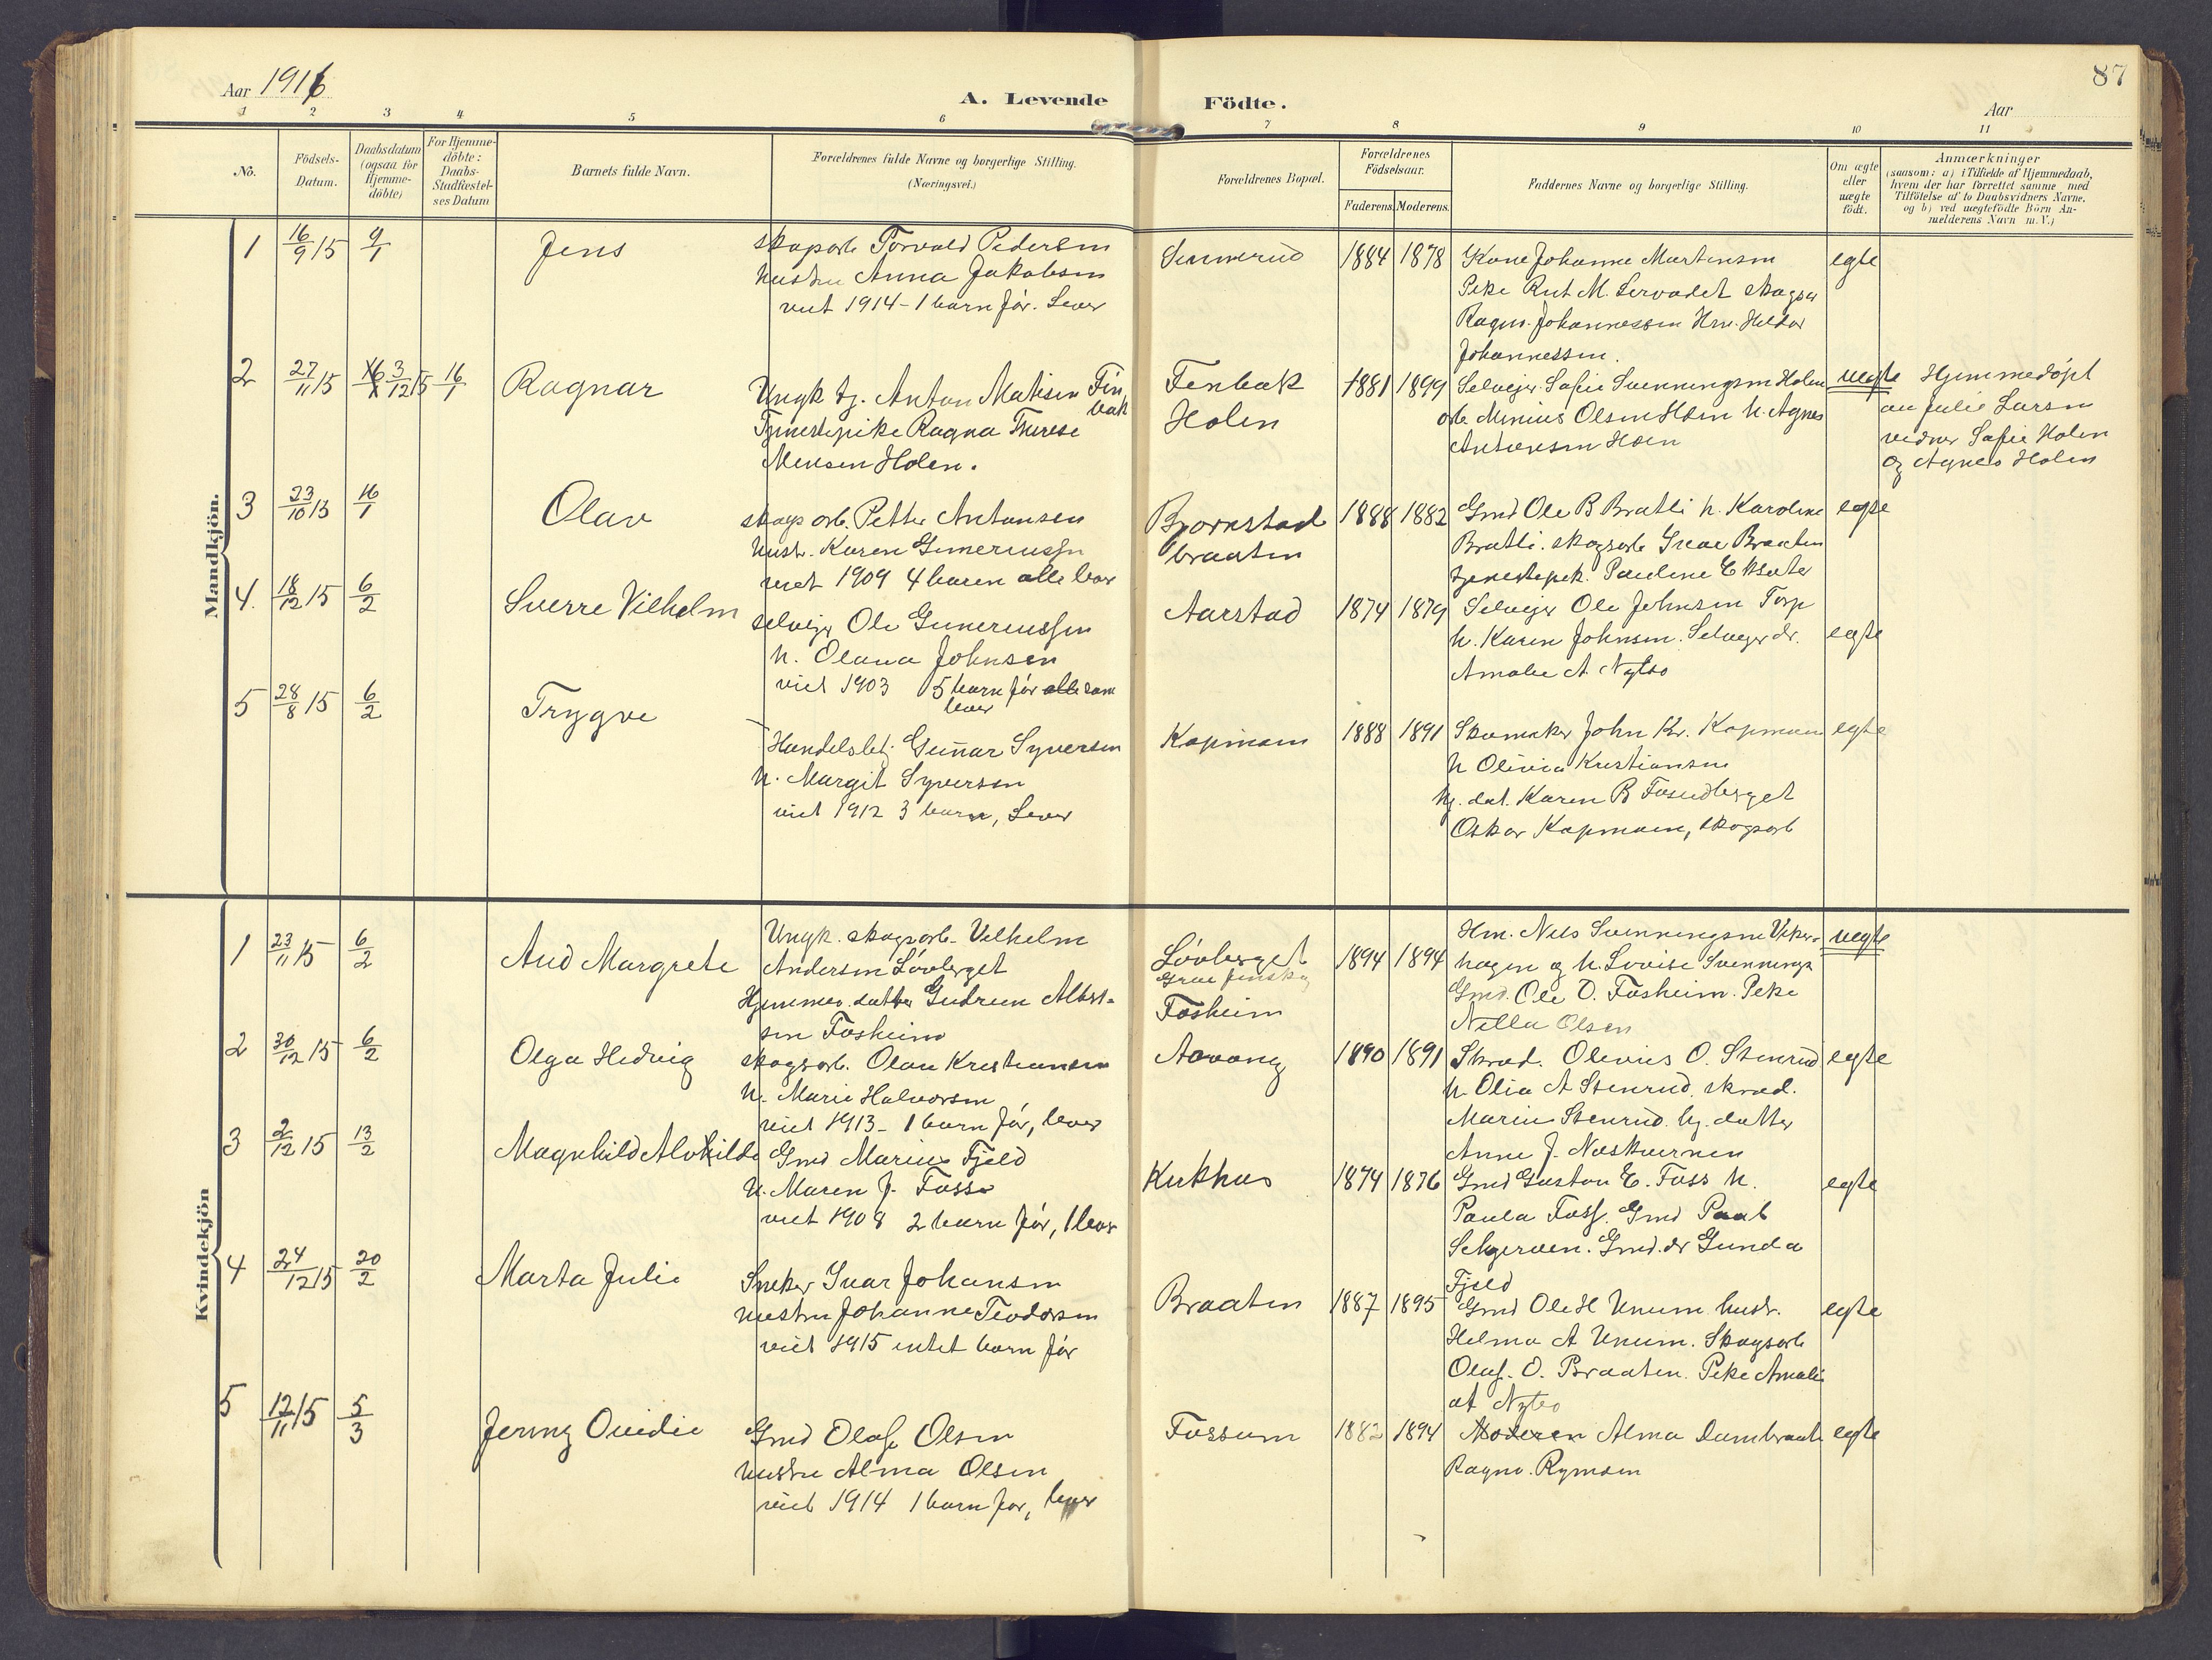 87
Aar 1916
A. Levende Födte.
Aar
1 2 3 4 5 6 7 8 9 10 11
No.
Födsels-Datum.
Daabsdatum (ogsaa for Hjemme-döbte)
For Hjemme-döbte: Daabs-Stadfæstel-ses Datum
Barnets fulde Navn.
Forældrenes fulde Navne og borgerlige Stilling. (Næringsvei.)
Forældrenes Bopæl.
Forældrenes Födselsaar.
Faderens. Moderens.
Faddernes Navne og borgerlige Stilling.
Om ægte eller uægte födt.
Anmærkninger
(saasom: a) i Tilfælde af Hjemmedaab,
hvem der har forrettet samme med
Tilföielse af to Daabsvidners Navne,
og b) ved uægtefödte Börn An-
melderens Navn m.V.)
Mandkjön.
1 16/9 15 9/1 Jens
skogarb Torvald Pedersen
hustru Anna Jakobsen
viet 1914 - 1 barn før. Lever
1884 1878
Kone Johanne Martinsen
Pike Rut M. skogsar
Ragn. Johannessen Hm. Haldor
Johannessen.
egte
2 27/11 15 3/12 15 16/1 Ragnar
Ungk tj. Anton Matisen Finbak
Tjenestepike Ragna Therese
Holen.
Finbak
Holen
1881 1899
Selvejer Sofie Svenningsen Holen
arb Minius Olsen Holen h. Agnes
uegte
Hjemmedøpt
av Julie Larsen
vidner Sofie Holen
og Agnes Holen
3 23/10 15 16/1 Olav
skogs arb. Petter Antonsen
hust. Karen Guneriussen
viet 1909 4 baren alle lever
Bjørnstad
braaten
1888 1882
Gmd Ole B Bratli h. Karoline
Bratli. skogsarb Ivar Braaten
tjenestepik. Pauline Eksæter
egte
4. 18/12 15 6/2 Sverre Vilhelm
selvejer Ole Guneriussen
h. Olava Johnsen
viet 1903 5 barn før alle som
lever
Aarstad
1874 1879
Selvejer Ole Johnsen Torp
h. Karen Johnsen. Selvejer dr.
Amalie A.
egte
5 28/8 15 6/2 Trygve
Handelsbetj. Gunnar Syversen
h. Margit Syversen
viet 1912 3 barn, Lever
Kopmoen
1888 1891
Skomaker John Kr. Kopmoen
h Olivia Kristiansen
hj. dat. Karen B Fosudberget
Oskar Kopmoen, skogsarb
egte
Kvindekjön
1 23/11 15 6/2 Aud Margrete
Ungk. skogsarb. Vilhelm
Andersen Løvberget
Hjemmev. datter Gudrun Albert-
sen Fosheim
Løvberget
Grue Finskog
Fosheim
1894 1894
Hm. Nils Svenningsen Viker-
hagen og h. Lovise Svennings
Gmd. Ole O. Fosheim. Pike
Nilla Olsen
uegte
2 30/12 15 6/2 Olga Hedvig
skogsarb. Olav Kristiansen
h. Marie Halvorsen
viet 1913 - 1 barn før, lever
Aavang
1890 1891
Skræd. Olevius O. Stenrud
h. Olia A Stenrud. skræd.
Marius Stenrud. hj. datter
Anne J. Næskvernen
egte
3 2/12 15 13/2 Magnhild Alvhilde
Gmd Marius Fjeld
h. Maren J. Foss
viet 1908 2 barn før, 1 lever
Kirkhus
1874 1876
Gmd Gustav E. Foss h.
Paula Foss. Gmd Paal
Gmd. dr Gunda
Fjeld
egte
4 24/12 15 20/2 Marta Julie
Sneker Ivar Johansen
hustru Johanne Teodorsen
viet 1915 intet barn før
Braaten
1887 1895
Gmd Ole H Unum hustr.
Helma A Unum. Skogsarb
Olaf. O. Braaten. Pike Amalie
egte
5 12/11 15 5/3 Jenny Ovidie
Gmd Olaf Olsen
hustru Alma Olsen
viet 1914 1 barn før, lever
Fossum
1882 1894
Moderen Alma Dambraaten
Ragnv. Rymoen
egte